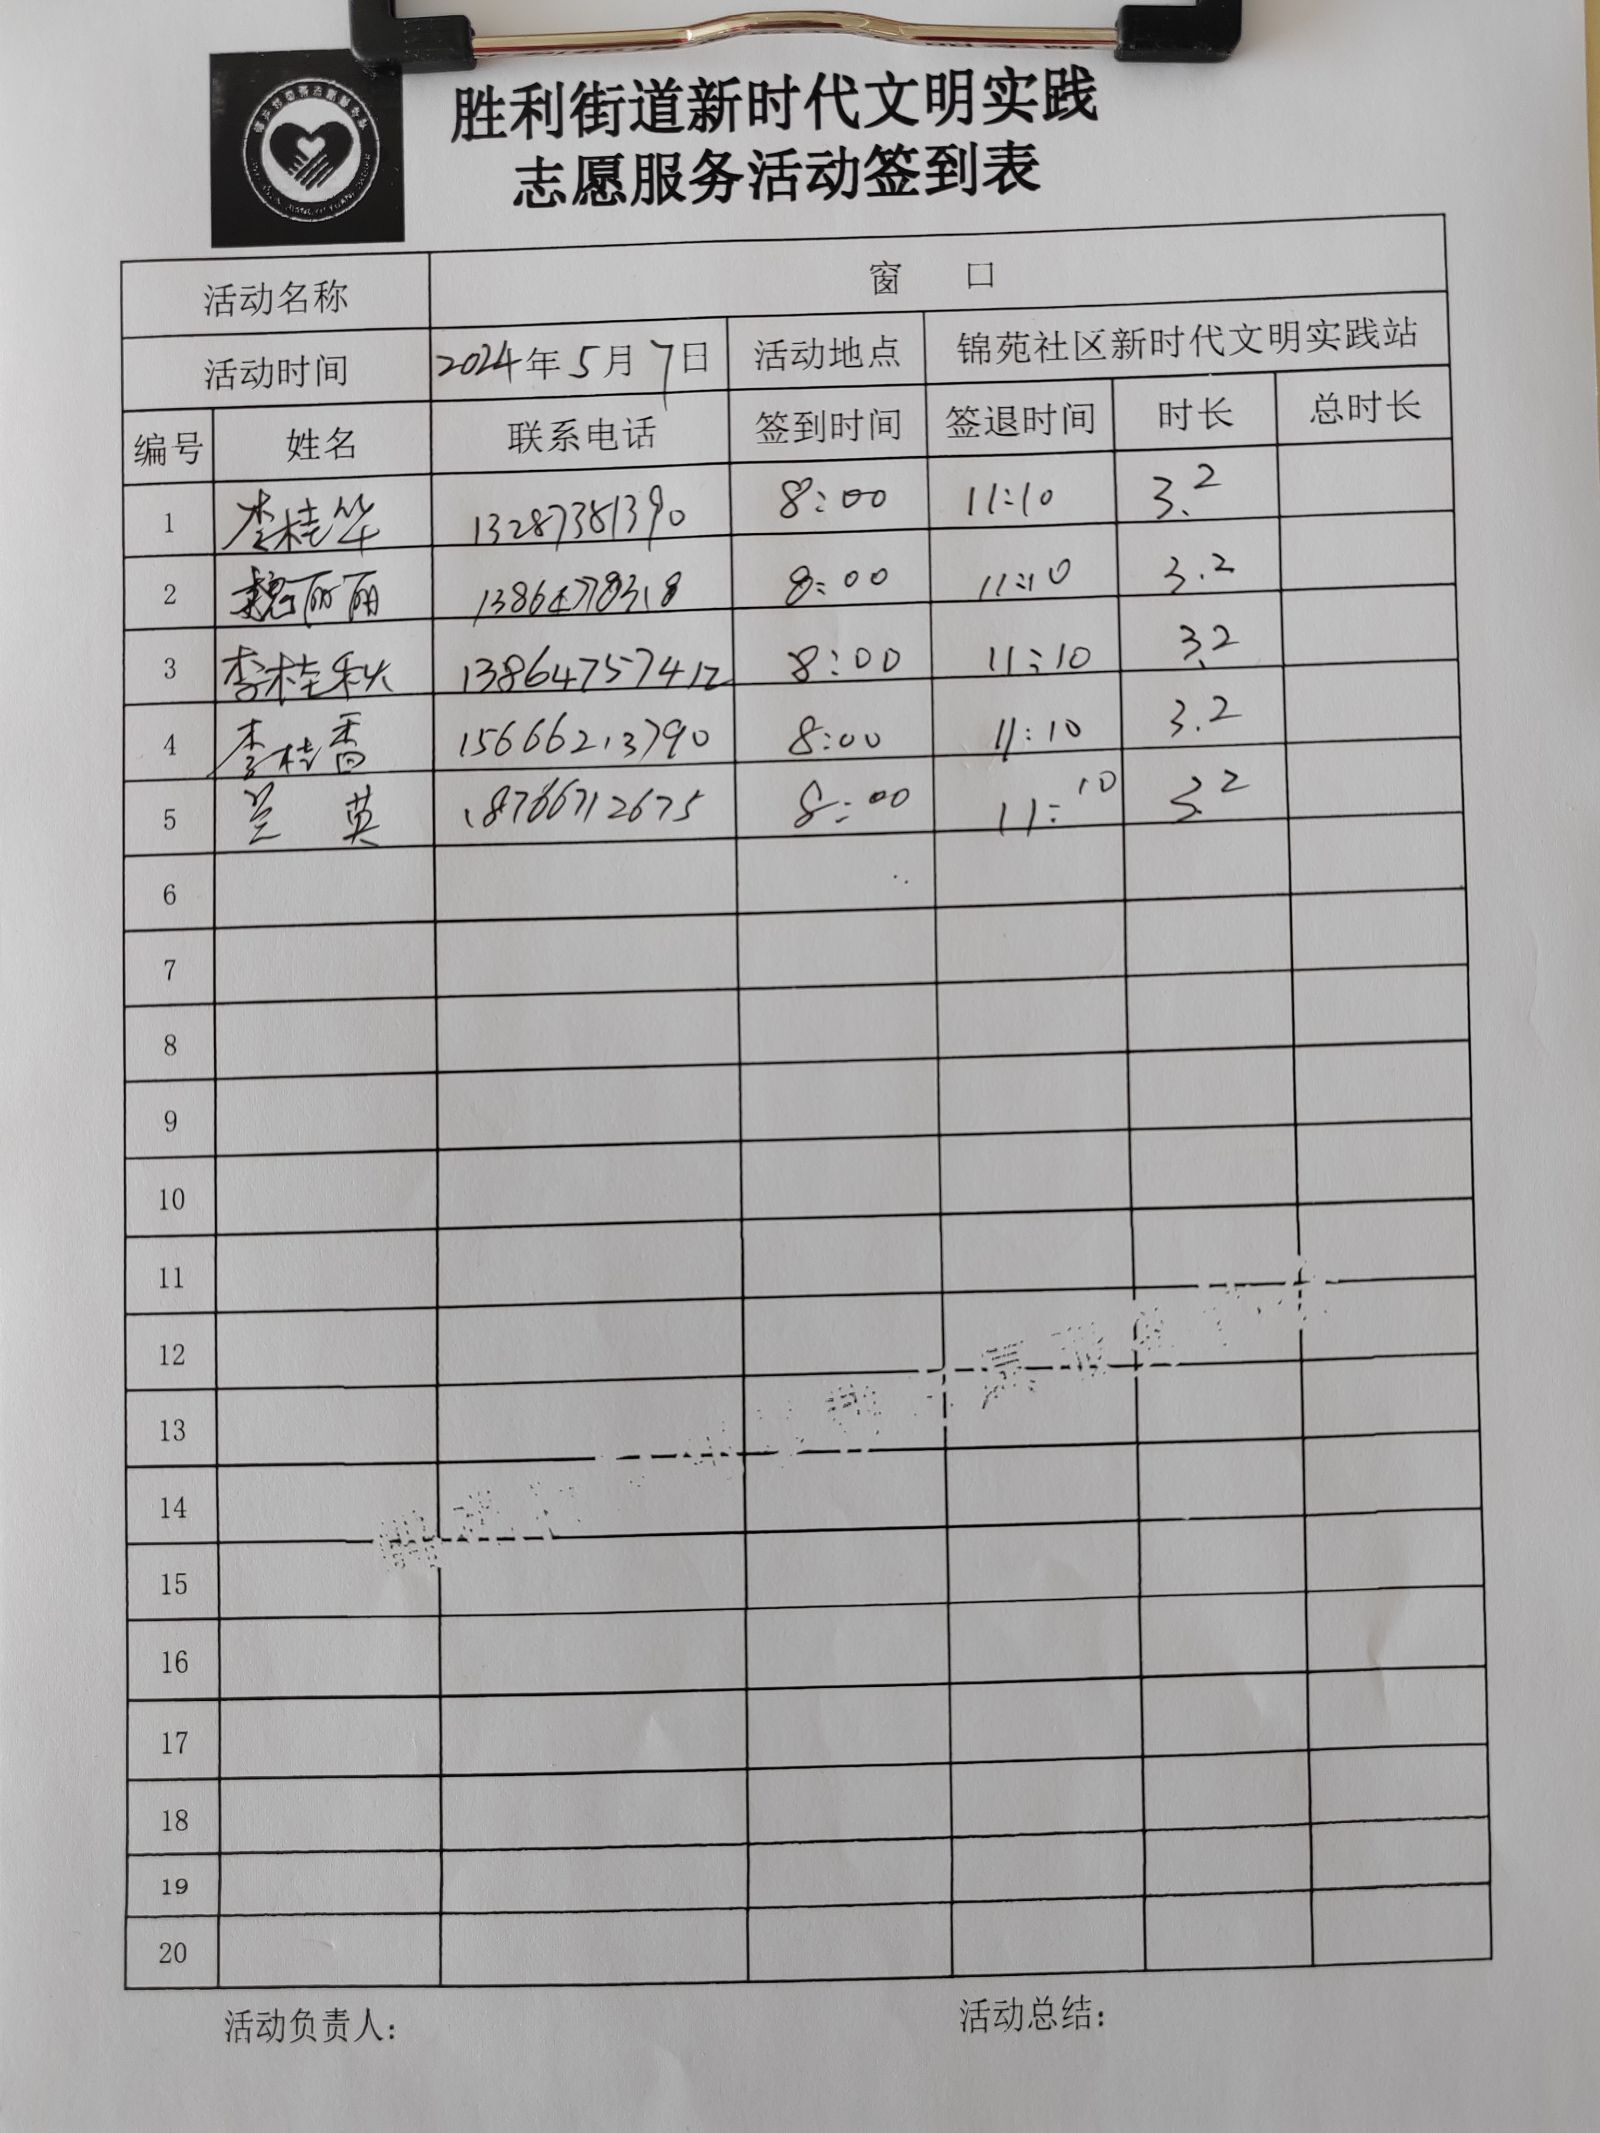 胜利街道新时代文明实践
志愿服务活动签到表
活动名称 窗 口
活动时间 2024年5月7日 活动地点 锦苑社区新时代文明实践站
编号 姓名 联系电话 签到时间 签退时间 时长 总时长
1 李桂华 13287381390 8:00 11:10 3.2
2 魏丽丽 8:00 11:10 3.2
3 李桂秋 13864757412 8:00 11:10 3.2
4 李桂香 15666213790 8:00 11:10 3.2
5 兰英 18766712675 8:00 11:10 3.2
6
7
8
9
10
11
12
13
14
15
16
17
18
19
20
活动负责人: 活动总结: